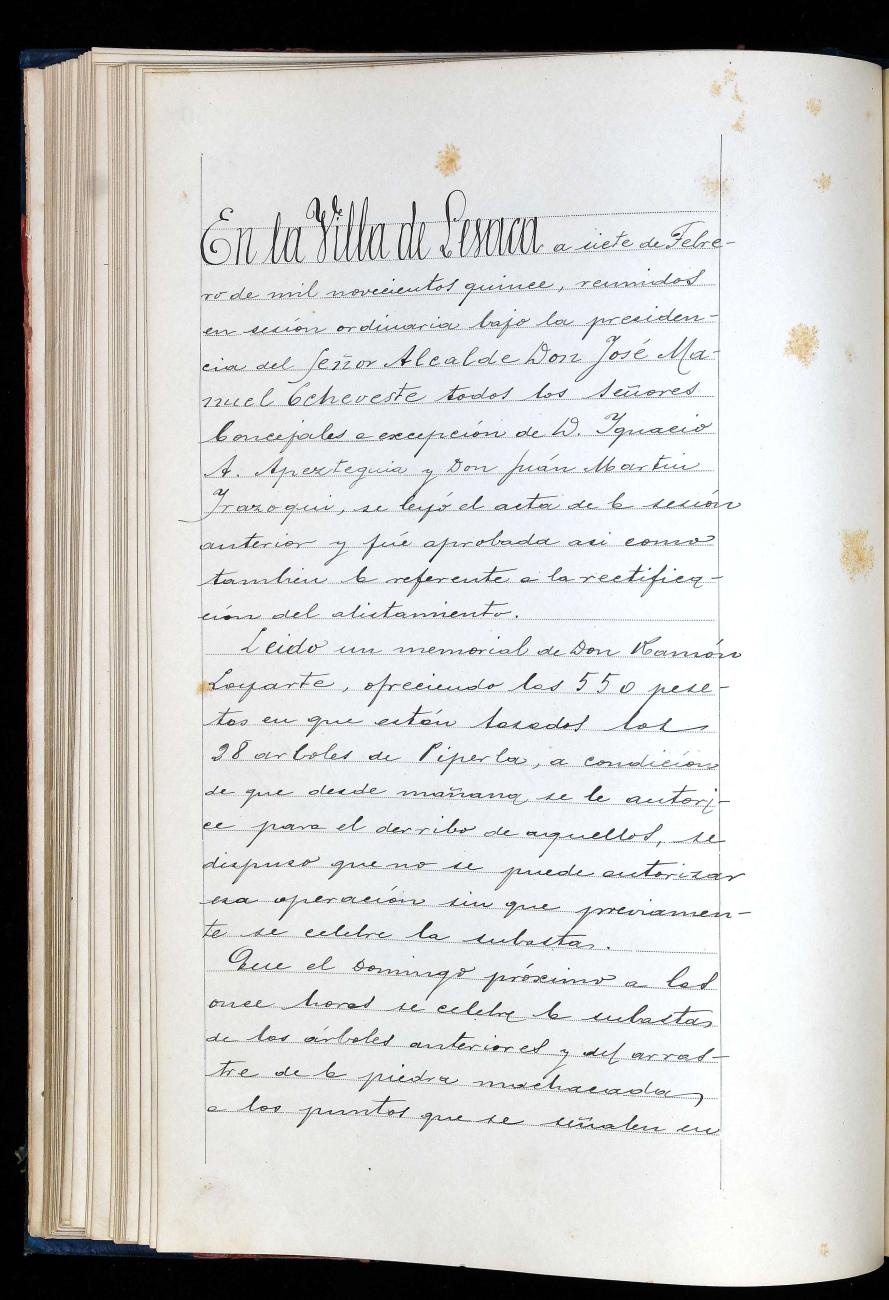 En la Villa de Lesaca a siete de Febre-
ro de mil novecientos quince, reunidos
en sesión ordinaria bajo la presiden-
cia del Señor Alcalde Don José Ma-
nuel Echeveste todos los Señores
Concejales a excepción de D. Ignacio
A. Apezteguia y Don Juán Martin
Irazoqui, se leyó el acta de la sesión
anterior y fué aprobada asi como
tambien la referente a la rectifica-
ción del alistamiento.
Leido un memorial de Don Ramón
Loyarte, ofreciendo las 550 pese-
tas en que están tasados los
28 arboles de Piperla, a condición
de que desde mañana se le autori-
ce para el derribo de aquellos, se
dispuso que no se puede autorizar
esa operación sin que previamen-
te se celebre la subasta.
Que el Domingo próximo a las
once horas se celebre la subasta
de los árboles anteriores y del arras-
tre de la piedra machacada,
a los puntos que se señalen en